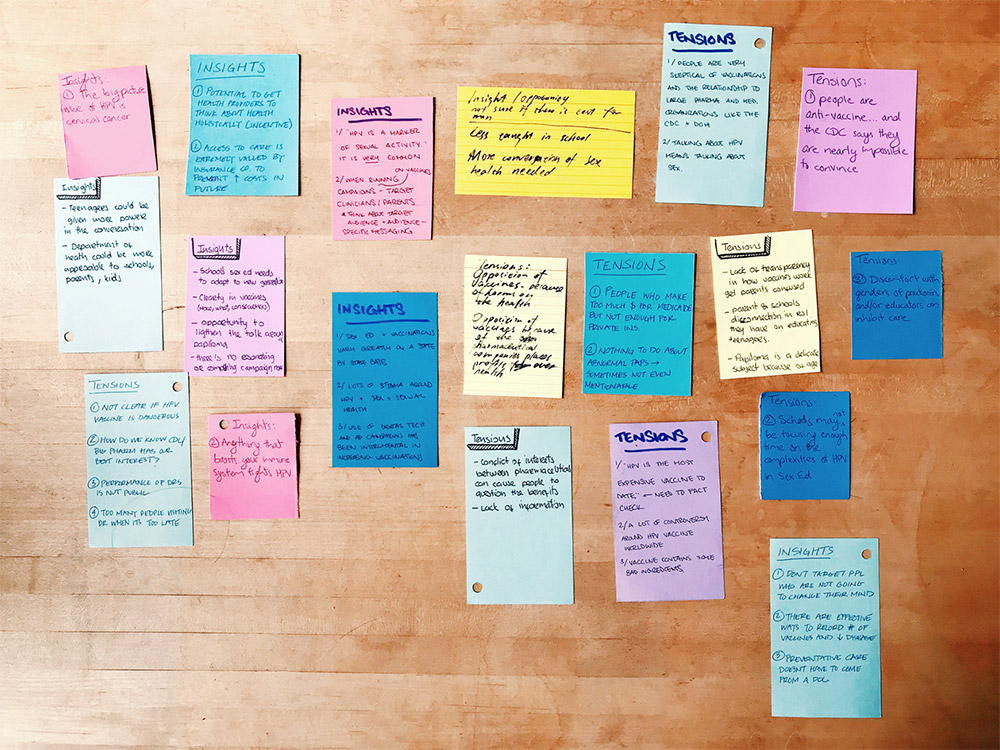 Insights:
① The big picture
issue of HPV is
cervical cancer
INSIGHTS
① POTENTIAL TO GET
HEALTH PROVIDERS TO
THINK ABOUT HEALTH
HOLISTICALLY (INCENTIVE)
② ACCESS TO CARE IS
EXTREMELY VALUED BY
INSURANCE CO. TO
PREVENT ↑ COSTS IN
FUTURE
INSIGHTS
1/ "HPV IS A MARKER
OF SEXUAL ACTIVITY"
IT IS VERY COMMON
ON VACCINES
2/ WHEN RUNNING
CAMPAIGNS - TARGET
CLINICIANS/PARENTS
* THINK ABOUT TARGET
AUDIENCE + AUDIENCE-
SPECIFIC MESSAGING
Insight / opportunity
not sure if there is cost for
man
Less caught in school
More conversation of sex
health needed
TENSIONS
1/ PEOPLE ARE VERY
SKEPTICAL OF VACCINATIONS
AND THE RELATIONSHIP TO
LARGE PHARMA AND MED.
ORGANIZATIONS LIKE THE
CDC + DOH
2/ TALKING ABOUT HPV
MEANS TALKING ABOUT
SEX.
Tensions:
① people are
anti-vaccine... and
the CDC says they
are nearly impossible
to convince
Insights
- Teenagers could be
given more power
in the conversation
- Department of
health could be more
approable to schools,
parents, kids
Insights
- Schools sex ed needs
to adapt to new generation
- Clarity in vaccines
(how, what, consequences)
- opportunity to
ligthen the talk around
papiloma
- there is no
or compling campaign now
INSIGHTS
1/ SEX ED + VACCINATIONS
VARY GREATLY ON A STATE
BY STATE BASIS.
2/ LOTS OF STIGMA AROUND
HPV + SEX + SEXUAL
HEALTH
3/ USE OF DIGITAL TECH
AND AD CAMPAIGNS HAS
BEEN INSTRUMENTAL IN
INCREASING VACCINATIONS
Tensions:
Opposicion of
Vaccines. because
of harm on
the health
Oposicion of
vaccines because
of the
pharmaceutical
companies places
profits over
health
TENSIONS
① PEOPLE WHO MAKE
TOO MUCH $ FOR MEDICARE
BUT NOT ENOUGH FOR
PRIVATE INS.
② NOTHING TO DO ABOUT
ABNORMAL PAPS →
SOMETIMES NOT EVEN
MENTIONABLE
Tensions
- Lack of transparency
in how vaccines work
get parents confused
- Parent & schools
disconnection in rol
they have on educating
teenagers.
- Papiloma is a delicate
subject because of age
Tensions:
③ Discomfort with
genders of
and/or educators can
inhibit care.
TENSIONS
① NOT CLEAR IF HPV
VACCINE IS DANGEROUS
② HOW DO WE KNOW CDC/
BIG PHARM HAS OUR
BEST INTEREST?
③ PERFORMANCE OF DRS
IS NOT PUBLIC
④ TOO MANY PEOPLE VISITING
DR WHEN ITS TOO LATE
Insights:
② Anything that
boosts your immune
system fights HPV
Tensions
- Conflict of interests
between pharmaceutical
can cause people to
question the benefits
- Lack of information
TENSIONS
1/ "HPV IS THE MOST
EXPENSIVE VACCINE TO
DATE" — NEED TO FACT
CHECK.
2/ A LOT OF CONTROVERSY
AROUND HPV VACCINE
WORLDWIDE
3/ VACCINE CONTAINS SOME
BAD INGREDIENTS.
Tensions:
② Schools may not
be focusing enough
time on the
complexities of HPV
in Sex Ed
INSIGHTS
① DON'T TARGET PPL
WHO ARE NOT GOING
TO CHANGE THEIR MIND
② THERE ARE EFFECTIVE
WAYS TO RECORD # OF
VACCINES AND ↓ DISEASE
③ PREVENTATIVE CARE
DOESNT HAVE TO COME
FROM A DOC.